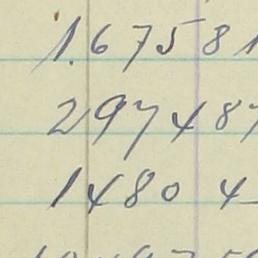 1.67581
297487
14804